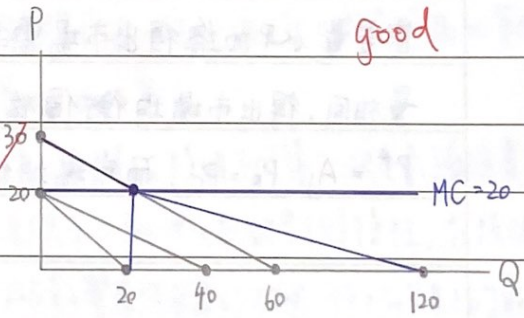 P
good
30
20
MC=20
20 40 60 120 Q